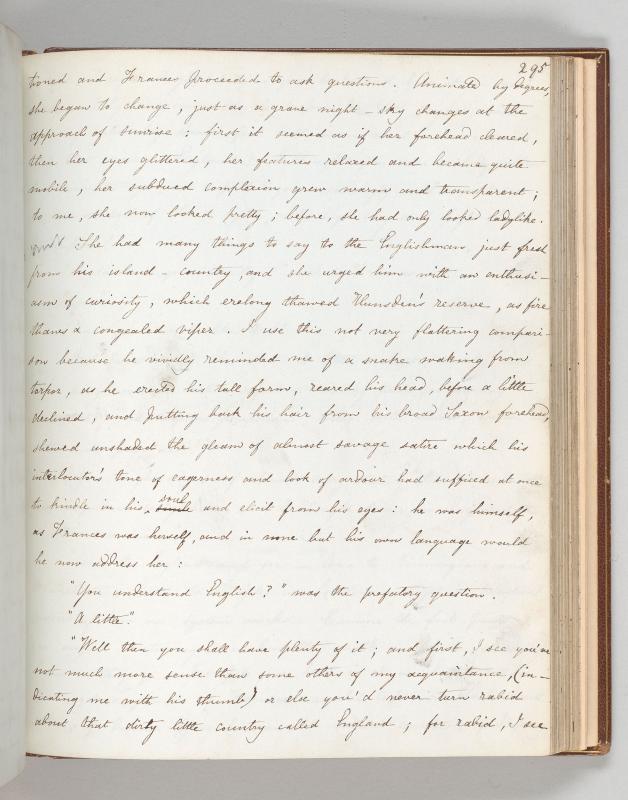 295
tioned and Frances proceeded to ask questions. Animated by degrees,
she began to change, just as a grave night-sky changes at the
approach of sunrise: first it seemed as if her forehead cleared,
then her eyes glittered, her features relaxed and became quite
mobile, her subdued complexion grew warm and transparent;
to me, she now looked pretty; before, she had only looked ladylike.
She had many things to say to the Englishman just fresh
from his island-country, and she urged him with an enthusi-
asm of curiosity, which erelong thawed Hunsden's reserve, as fire
thaws a congealed viper. I use this not very flattering compari-
son because he vividly reminded me of a snake waking from
torpor, as he erected his tall form, reared his head, before a little
declined, and putting back his hair from his broad Saxon forehead,
shewed unshaded the gleam of almost savage satire which his
interlocutor's tone of eagerness and look of ardour had sufficed at once
to kindle in his soul and elicit from his eyes: he was himself,
as Frances was herself, and in none but his own language would
he now address her:
"You understand English?" was the prefatory question.
"A little".
"Well then you shall have plenty of it; and first, I see you've
not much more sense than some others of my acquaintance, (in-
dicating me with his thumb) or else you'd never turn rabid
about that dirty little country called England; for rabid, I see